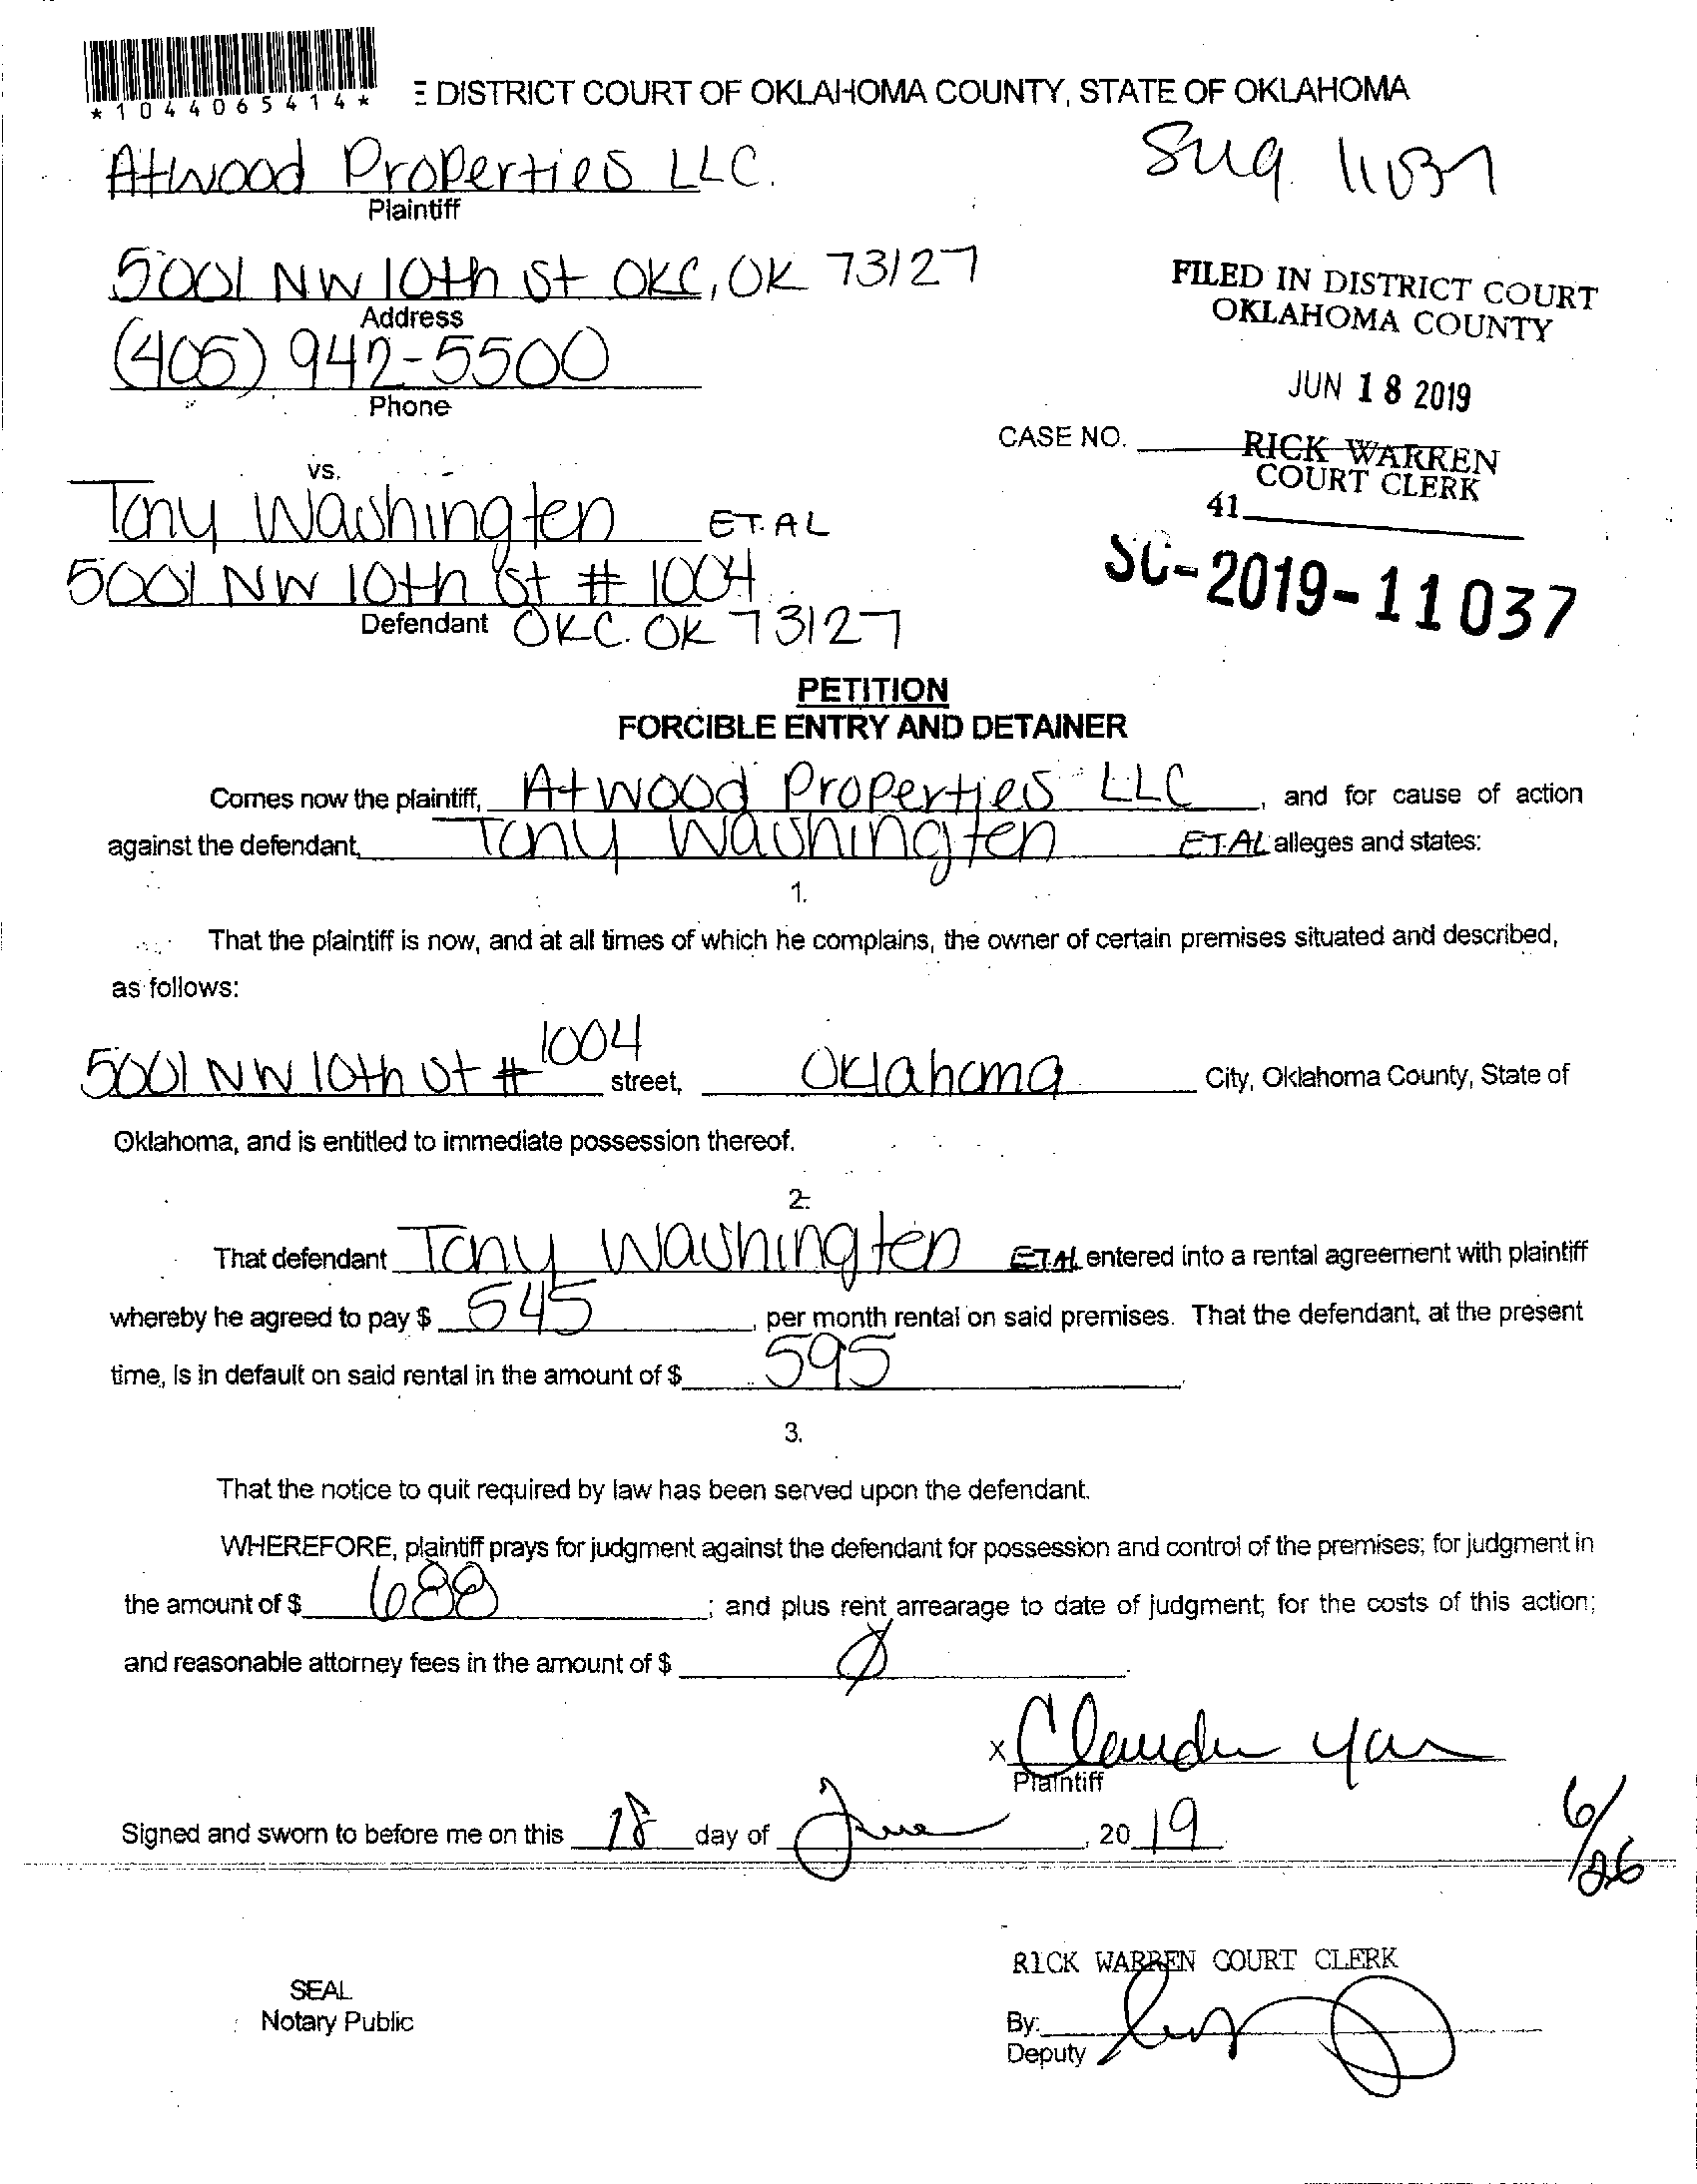 *1044065414*
E DISTRICT COURT OF OKLAHOMA COUNTY, STATE OF OKLAHOMA
Atwood Properties LLC.
Plaintiff
11037
5001 NW 10th St OKC, OK 73127
Address
(405) 942-5500
Phone
FILED IN DISTRICT COURT
OKLAHOMA COUNTY
JUN 18 2019
CASE NO.
RICK WARREN
COURT CLERK
41
vs.
Tony Washington ET.AL
5001 NW 10th St # 1004
Defendant OKC. OK 73127
SC-2019-11037
PETITION
FORCIBLE ENTRY AND DETAINER
Comes now the plaintiff, Atwood Properties LLC, and for cause of action
against the defendant, Tony Washington ET.AL alleges and states:
1.
That the plaintiff is now, and at all times of which he complains, the owner of certain premises situated and described,
as follows:
5001 NW 10th St # 1004 street, Oklahoma City, Oklahoma County, State of
Oklahoma, and is entitled to immediate possession thereof.
2.
That defendant Tony Washington ET.AL entered into a rental agreement with plaintiff
whereby he agreed to pay $ 545, per month rental on said premises. That the defendant, at the present
time, is in default on said rental in the amount of $ 595.
3.
That the notice to quit required by law has been served upon the defendant.
WHEREFORE, plaintiff prays for judgment against the defendant for possession and control of the premises; for judgment in
the amount of $ 688; and plus rent arrearage to date of judgment; for the costs of this action;
and reasonable attorney fees in the amount of $ Ø.
x
Plaintiff
Signed and sworn to before me on this 18 day of June, 2019
6/26
RICK WARREN COURT CLERK
SEAL
Notary Public
By:
Deputy